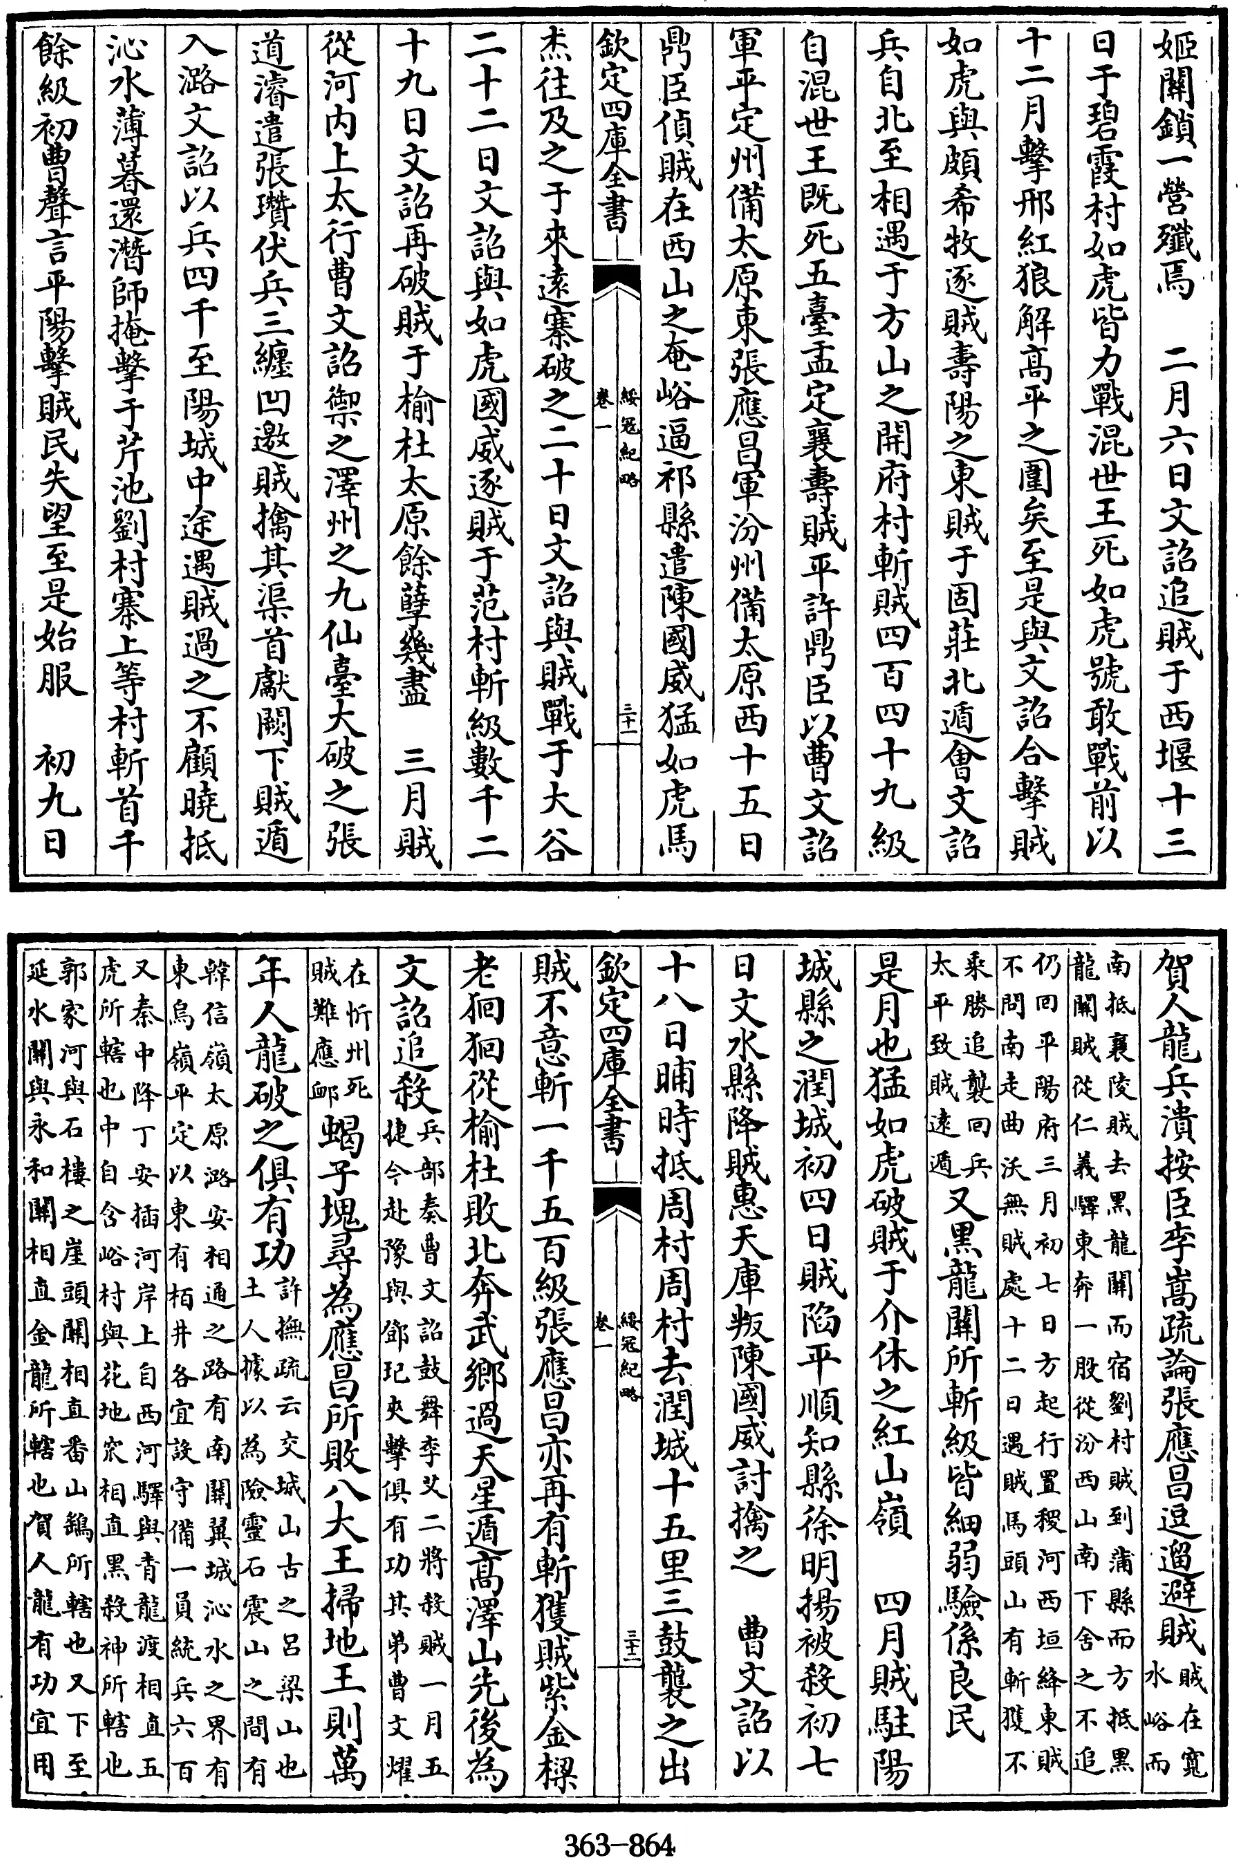 姬關鎖一營殲焉　二月六日文詔追賊于西堰十三
日于碧霞村如虎皆力戰混世王死如虎號敢戰前以
十二月擊邢紅狼解高平之圍矣至是與文詔合擊賊
如虎與頗希牧逐賊壽陽之東賊于固莊北遁會文詔
兵自北至相遇于方山之開府村斬賊四百四十九級
自混世王既死五臺盂定襄壽賊平許鼎臣以曹文詔
軍平定州備太原東張應昌軍汾州備太原西十五日
鼎臣偵賊在西山之奄峪逼祁縣遣陳國威猛如虎馬
欽定四庫全書
綏冦紀略
卷一
三十一
杰往及之于來遠寨破之二十日文詔與賊戰于大谷
二十二日文詔與如虎國威逐賊于范村斬級數千二
十九日文詔再破賊于榆杜太原餘孽幾盡　三月賊
從河内上太行曹文詔禦之澤州之九仙臺大破之張
道濬遣張瓚伏兵三纏凹邀賊擒其渠首獻闕下賊遁
入潞文詔以兵四千至陽城中途遇賊過之不顧曉抵
沁水薄暮還潛師掩擊于芹池劉村寨上等村斬首千
餘級初曹聲言平陽擊賊民失望至是始服　初九日
賀人龍兵潰按臣李嵩疏論張應昌逗遛避賊
賊在窺
水峪而
南抵襄陵賊去黑龍關而宿劉村賊到蒲縣而方抵黑
龍關賊從仁義驛東奔一股從汾西山南下舍之不追
仍回平陽府三月初七日方起行置稷河西垣絳東賊
不問南走曲沃無賊處十二日遇賊馬頭山有斬獲不
乘勝追襲回兵
太平致賊遠遁
又黑龍關所斬級皆細弱驗係良民
是月也猛如虎破賊于介休之紅山嶺　四月賊駐陽
城縣之潤城初四日賊陷平順知縣徐明揚被殺初七
日文水縣降賊惠天庫叛陳國威討擒之　曹文詔以
十八日晡時抵周村周村去潤城十五里三鼓襲之出
欽定四庫全書
綏冦紀略
卷一
三十二
賊不意斬一千五百級張應昌亦再有斬獲賊紫金樑
老𢌞𢌞從榆杜敗北奔武鄉過天星遁高澤山先後為
文詔追殺
兵部奏曹文詔鼓舞李艾二將殺賊一月五
捷今赴豫與鄧玘夾擊俱有功其弟曹文耀
在忻州死
賊難應䘏
蝎子塊尋為應昌所敗八大王掃地王則萬
年人龍破之俱有功
許撫疏云交城山古之呂梁山也
土人據以為險靈石震山之間有
韓信嶺太原潞安相通之路有南關翼城沁水之界有
東烏嶺平定以東有栢井各宜設守備一員統兵六百
又秦中降丁安插河岸上自西河驛與青龍渡相直五
虎所轄也中自含峪村與花地窊相直黑殺神所轄也
郭家河與石樓之崖頭關相直番山鷂所轄也又下至
延水關與永和關相直金龍所轄也賀人龍有功宜用
363-864